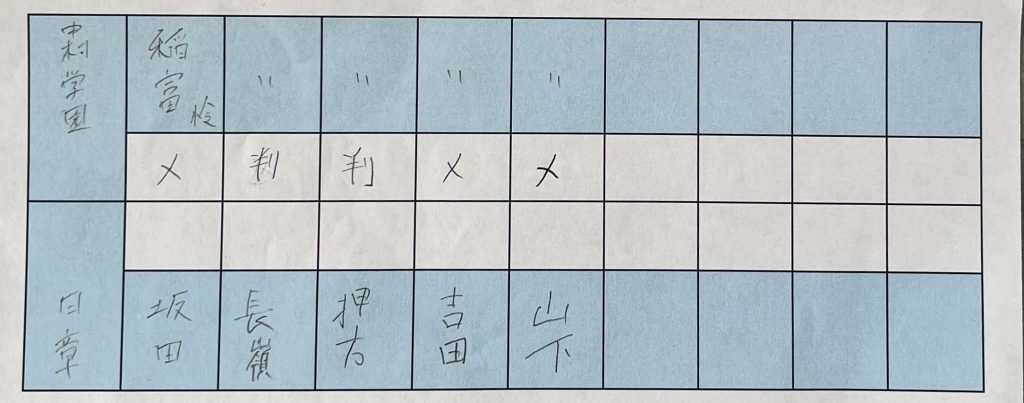 中村学園 稲富怜 〃 〃 〃 〃
メ 判 判 メ メ
日章 坂田 長嶺 押方 吉田 山下